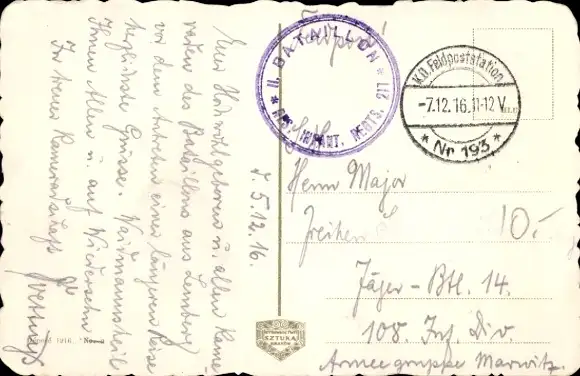 d. 5.12.16.
Euer Hochwohlgeboren u. allen Kame-
raden des Bataillons aus Lemberg
vor dem Antreten einer längeren Reise
herzlichste Grüsse. Waidmannsheil
Ihnen Allen u. auf Wiedersehn
In treuer Kameradschaft
Feldpost
II. BATAILLON
* RES. INFANT. REGTS. 217 *
K.D. Feldpoststation
-7.12.16.11-12 V.
* Nr 193 *
Herrn Major
Freiherr
10.-
Jäger-Btl. 14.
108. Inf. Div.
Armeegruppe Marwitz.
SZTUKA
KRAKÓW
1916